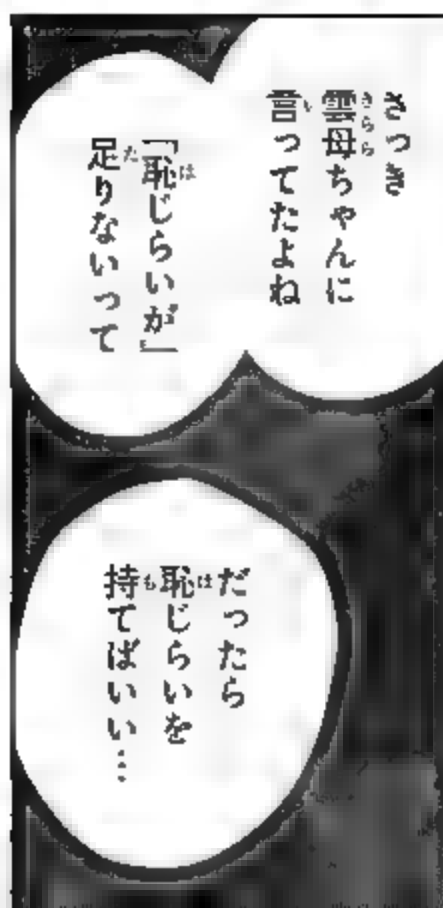 さっき
雲母ちゃんに
言ってたよね
「恥じらいが」
足りないって
だったら
恥じらいを
持てばいい…